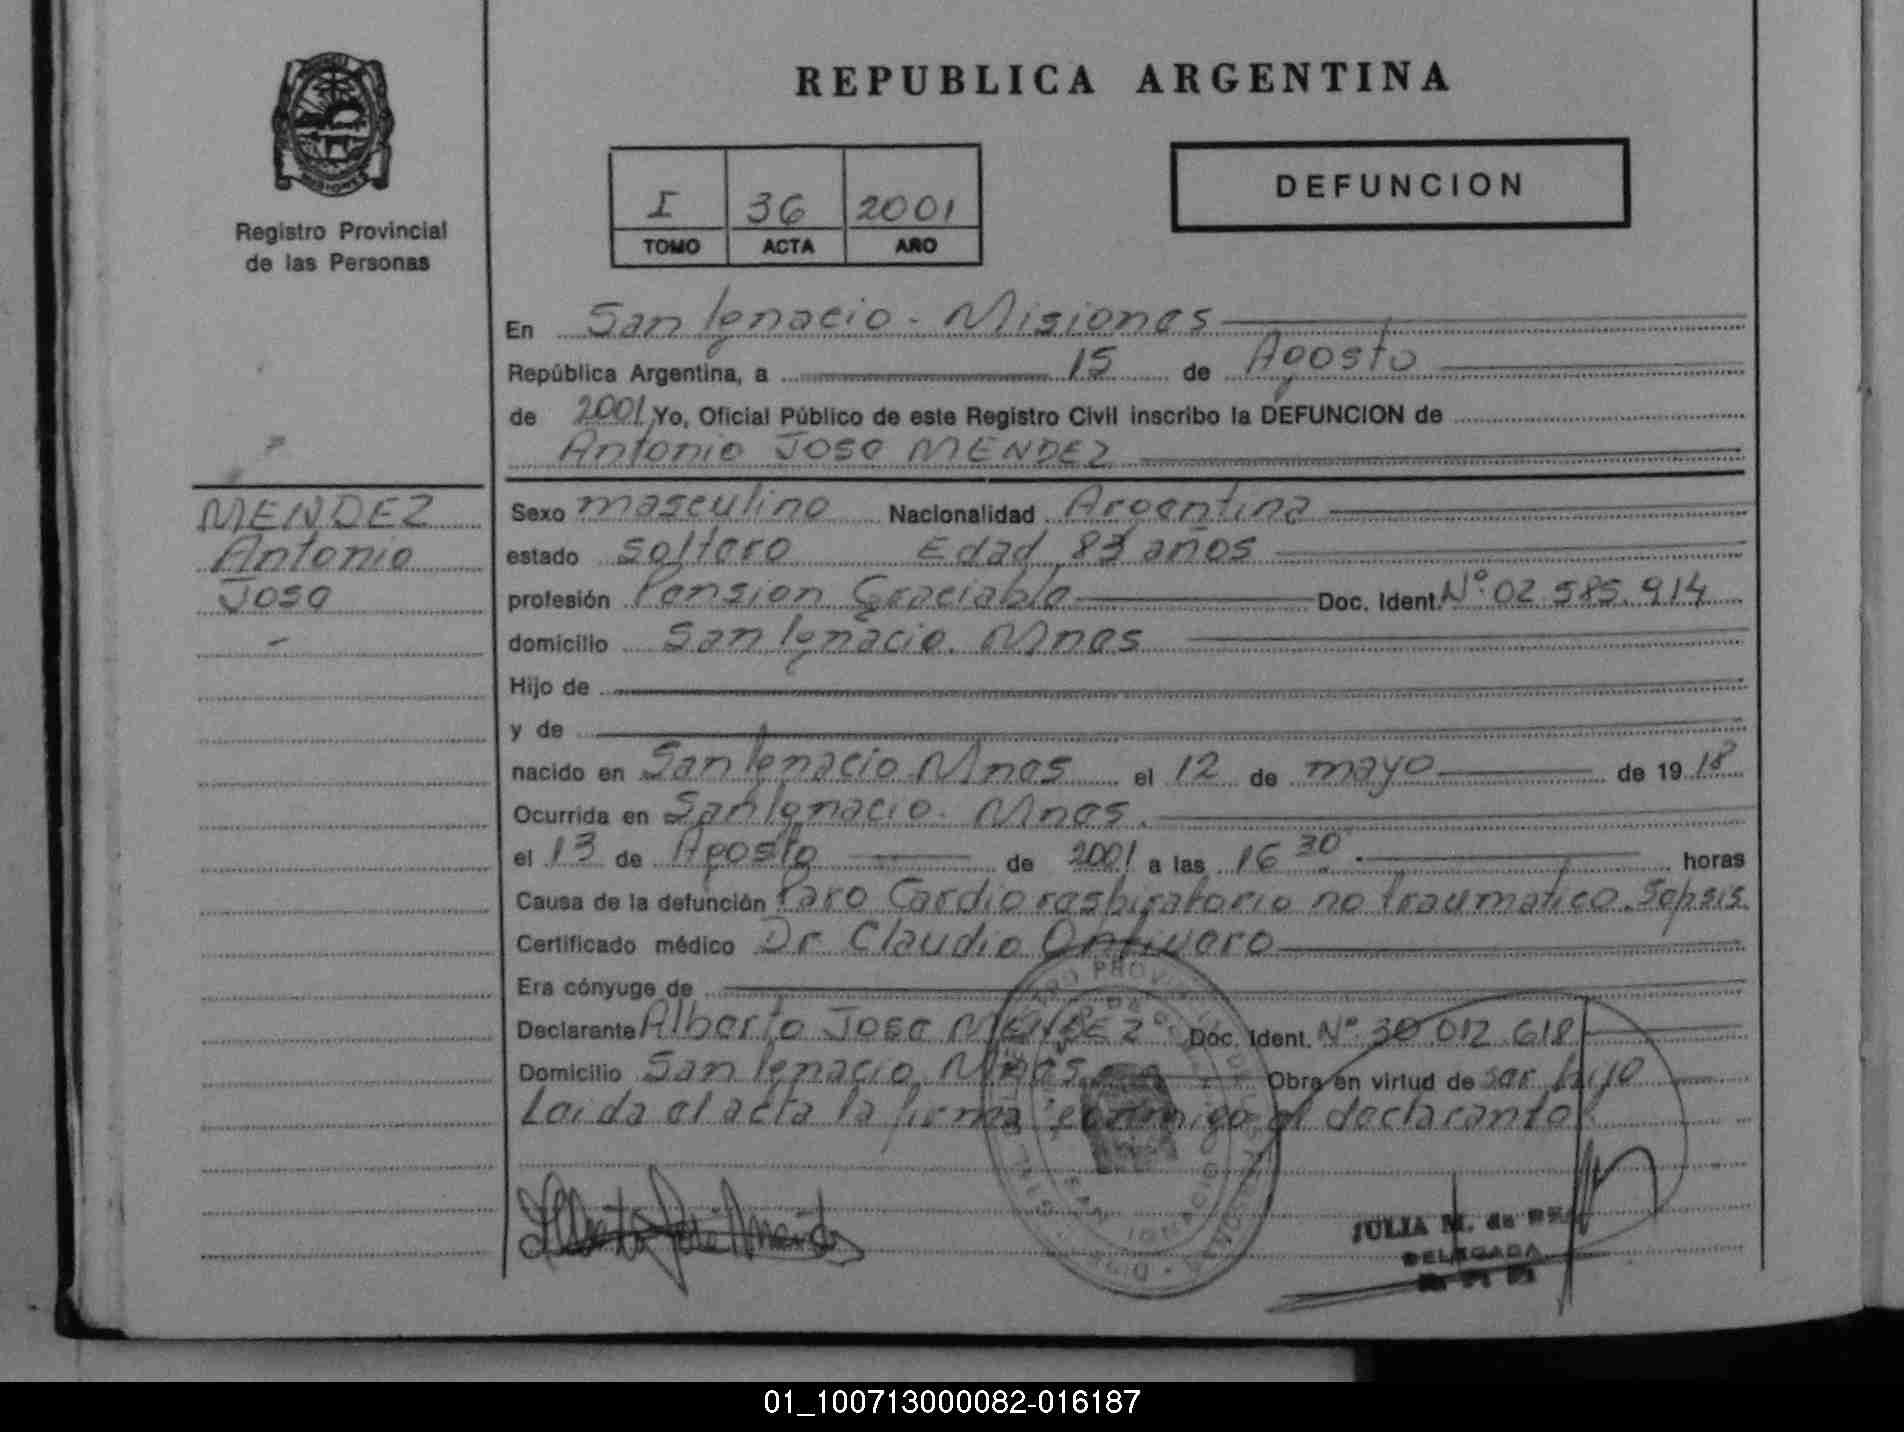 REPUBLICA ARGENTINA
MISIONES
Registro Provincial
de las Personas
I 36 2001
TOMO ACTA AÑO
DEFUNCION
En San Ignacio - Misiones
República Argentina, a 15 de Agosto
de 2001 Yo, Oficial Público de este Registro Civil inscribo la DEFUNCION de
Antonio Jose MENDEZ
MENDEZ
Antonio
Jose
Sexo masculino Nacionalidad Argentina
estado soltero Edad 83 años
profesión Pension Graciable Doc. Ident. Nº 02 585.914
domicilio San Ignacio. Mnes
Hijo de
y de
nacido en San Ignacio Mnes el 12 de mayo de 19 18
Ocurrida en San Ignacio. Mnes.
el 13 de Agosto de 2001 a las 16 30 horas
Causa de la defunción Paro Cardio respiratorio no traumatico. Sepsis.
Certificado médico Dr Claudio Ontivero
Era cónyuge de
Declarante Alberto Jose MENDEZ Doc. Ident. Nº 30 012.618
Domicilio San Ignacio Mnes Obra en virtud de ser hijo
Leida el acta la firma conmigo el declarante
Alberto José Mendez
SAN IGNACIO
JULIA M. de
DELEGADA
01_100713000082-016187